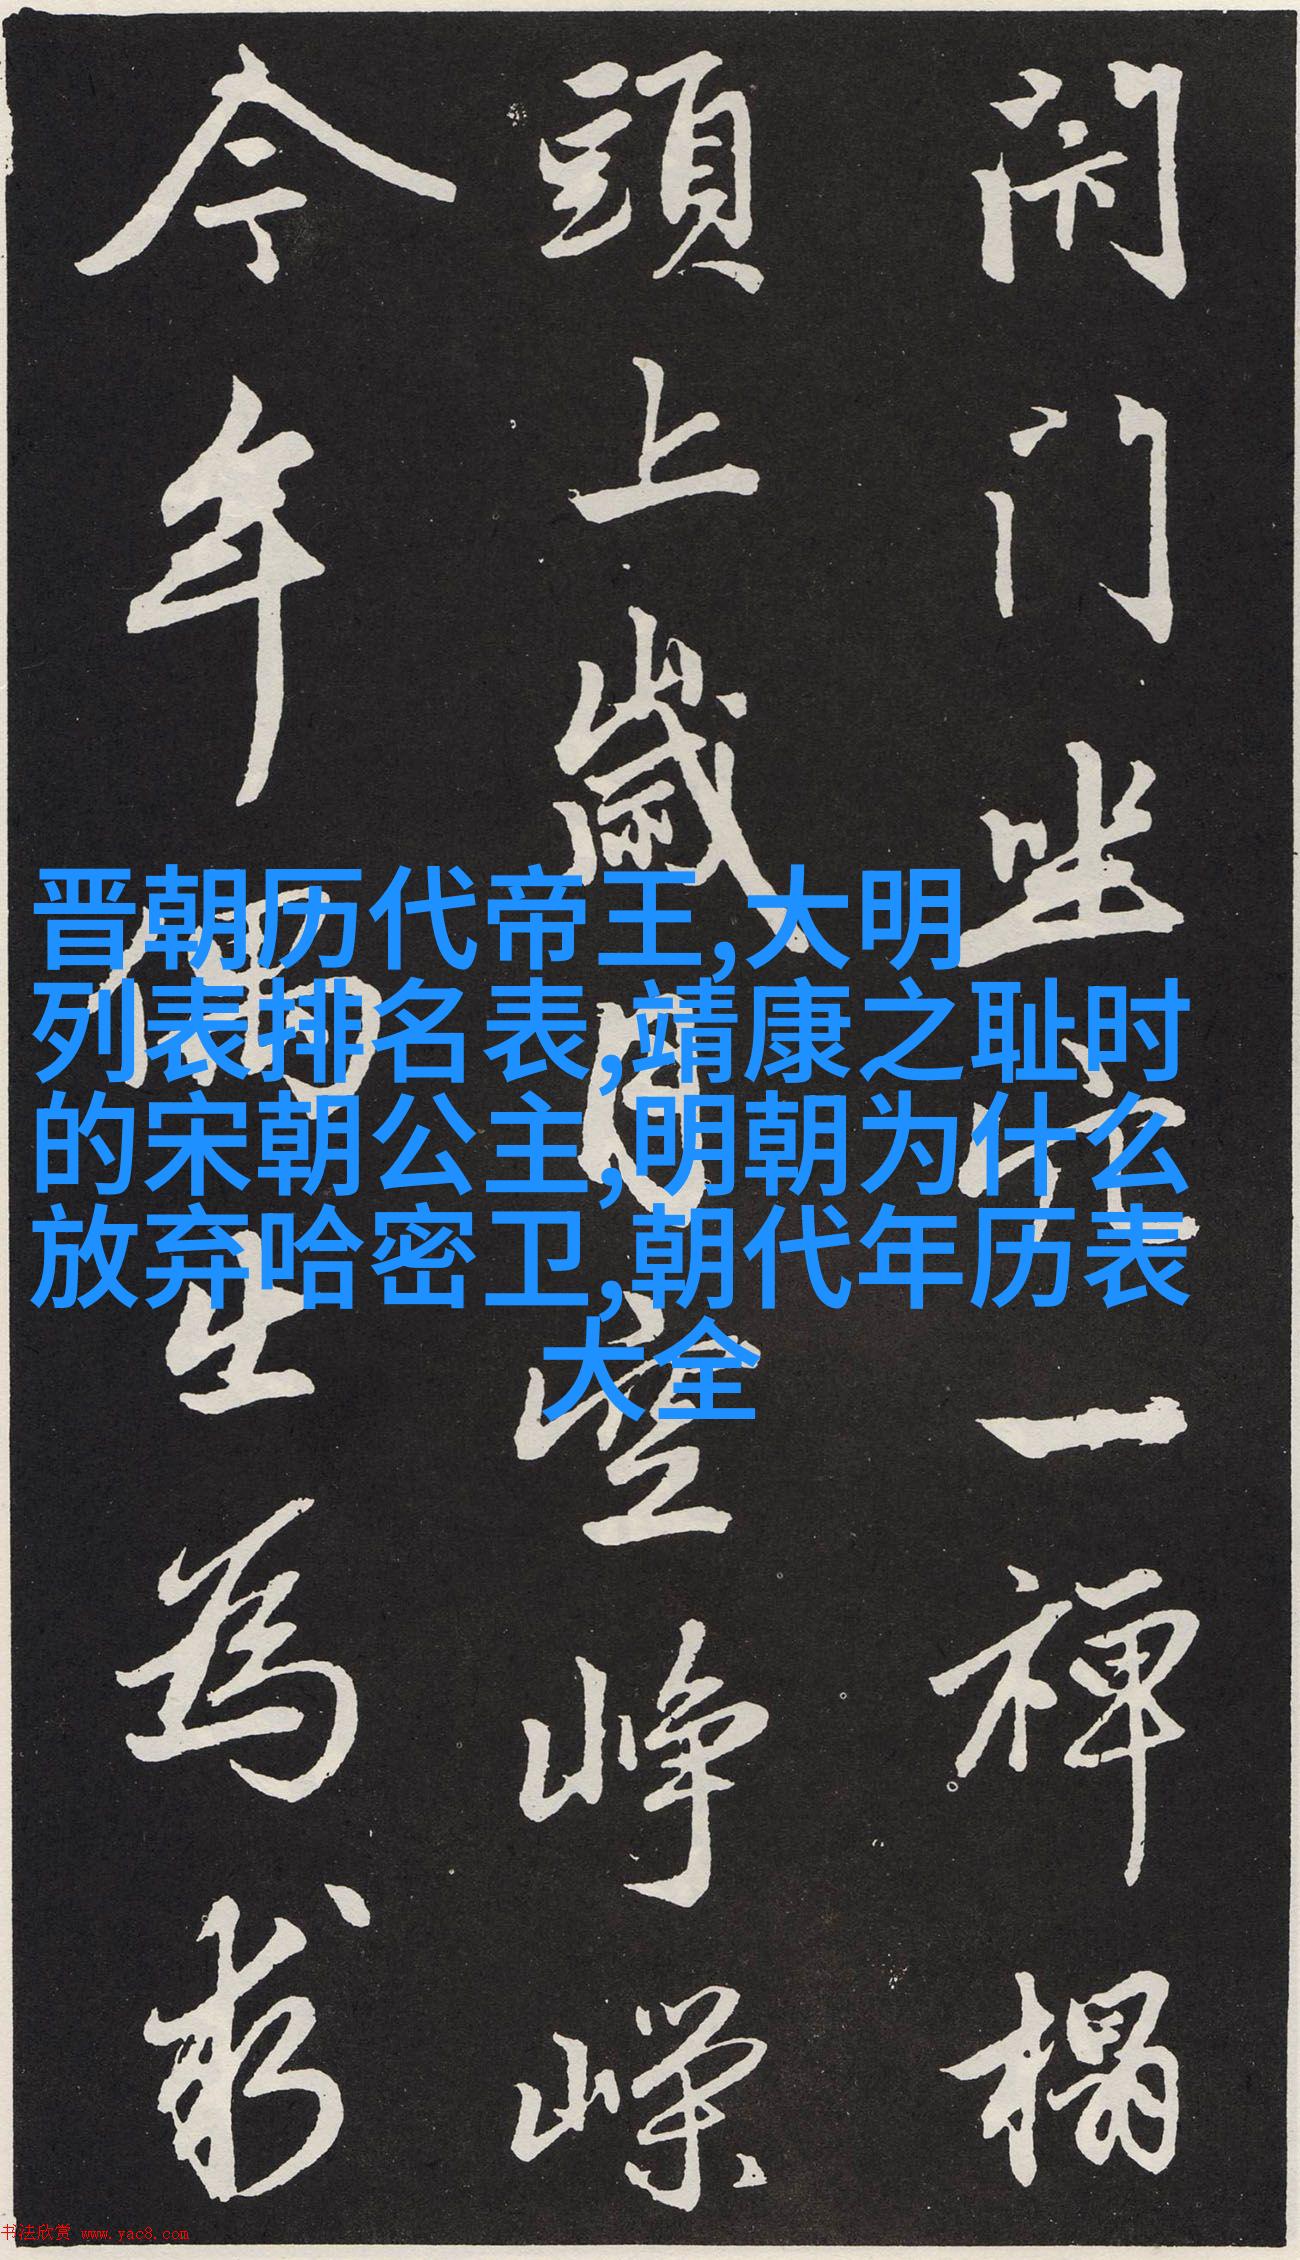 闭门坐穴一禅榻
頭上歲月空崢嶸
今年偶出為求
晋朝历代帝王,大明
列表排名表,靖康之耻时
的宋朝公主,明朝为什么
放弃哈密卫,朝代年历表
大全
书法欣赏 www.yac8.com